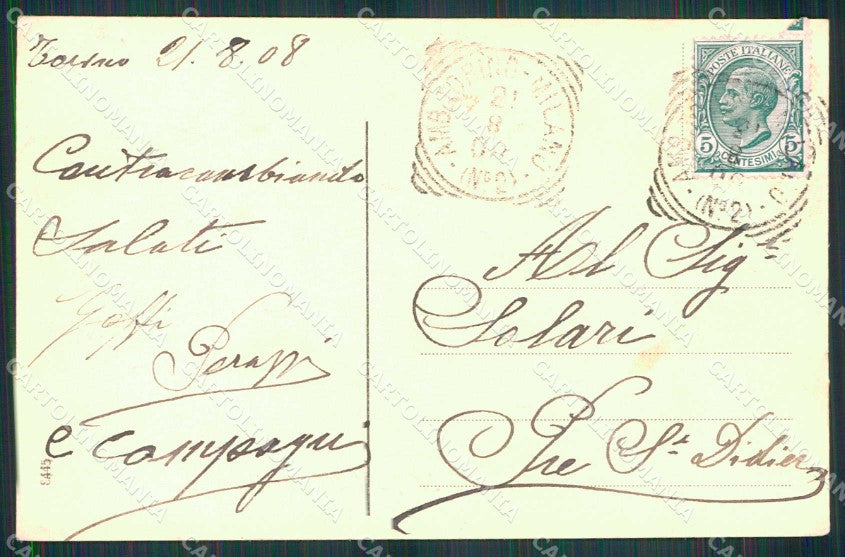 Torino 21.8.08
Contraccambiando
Saluti
Goffi
Perazzi
e Compagni
8445
AMB. TORINO - MILANO
21
8
08
(Nº2)
POSTE ITALIANE
5 5
CENTESIMI
AMB.
(Nº2)
Al Sigr
Solari
Pre St Didier
CARTOLINOMANIA